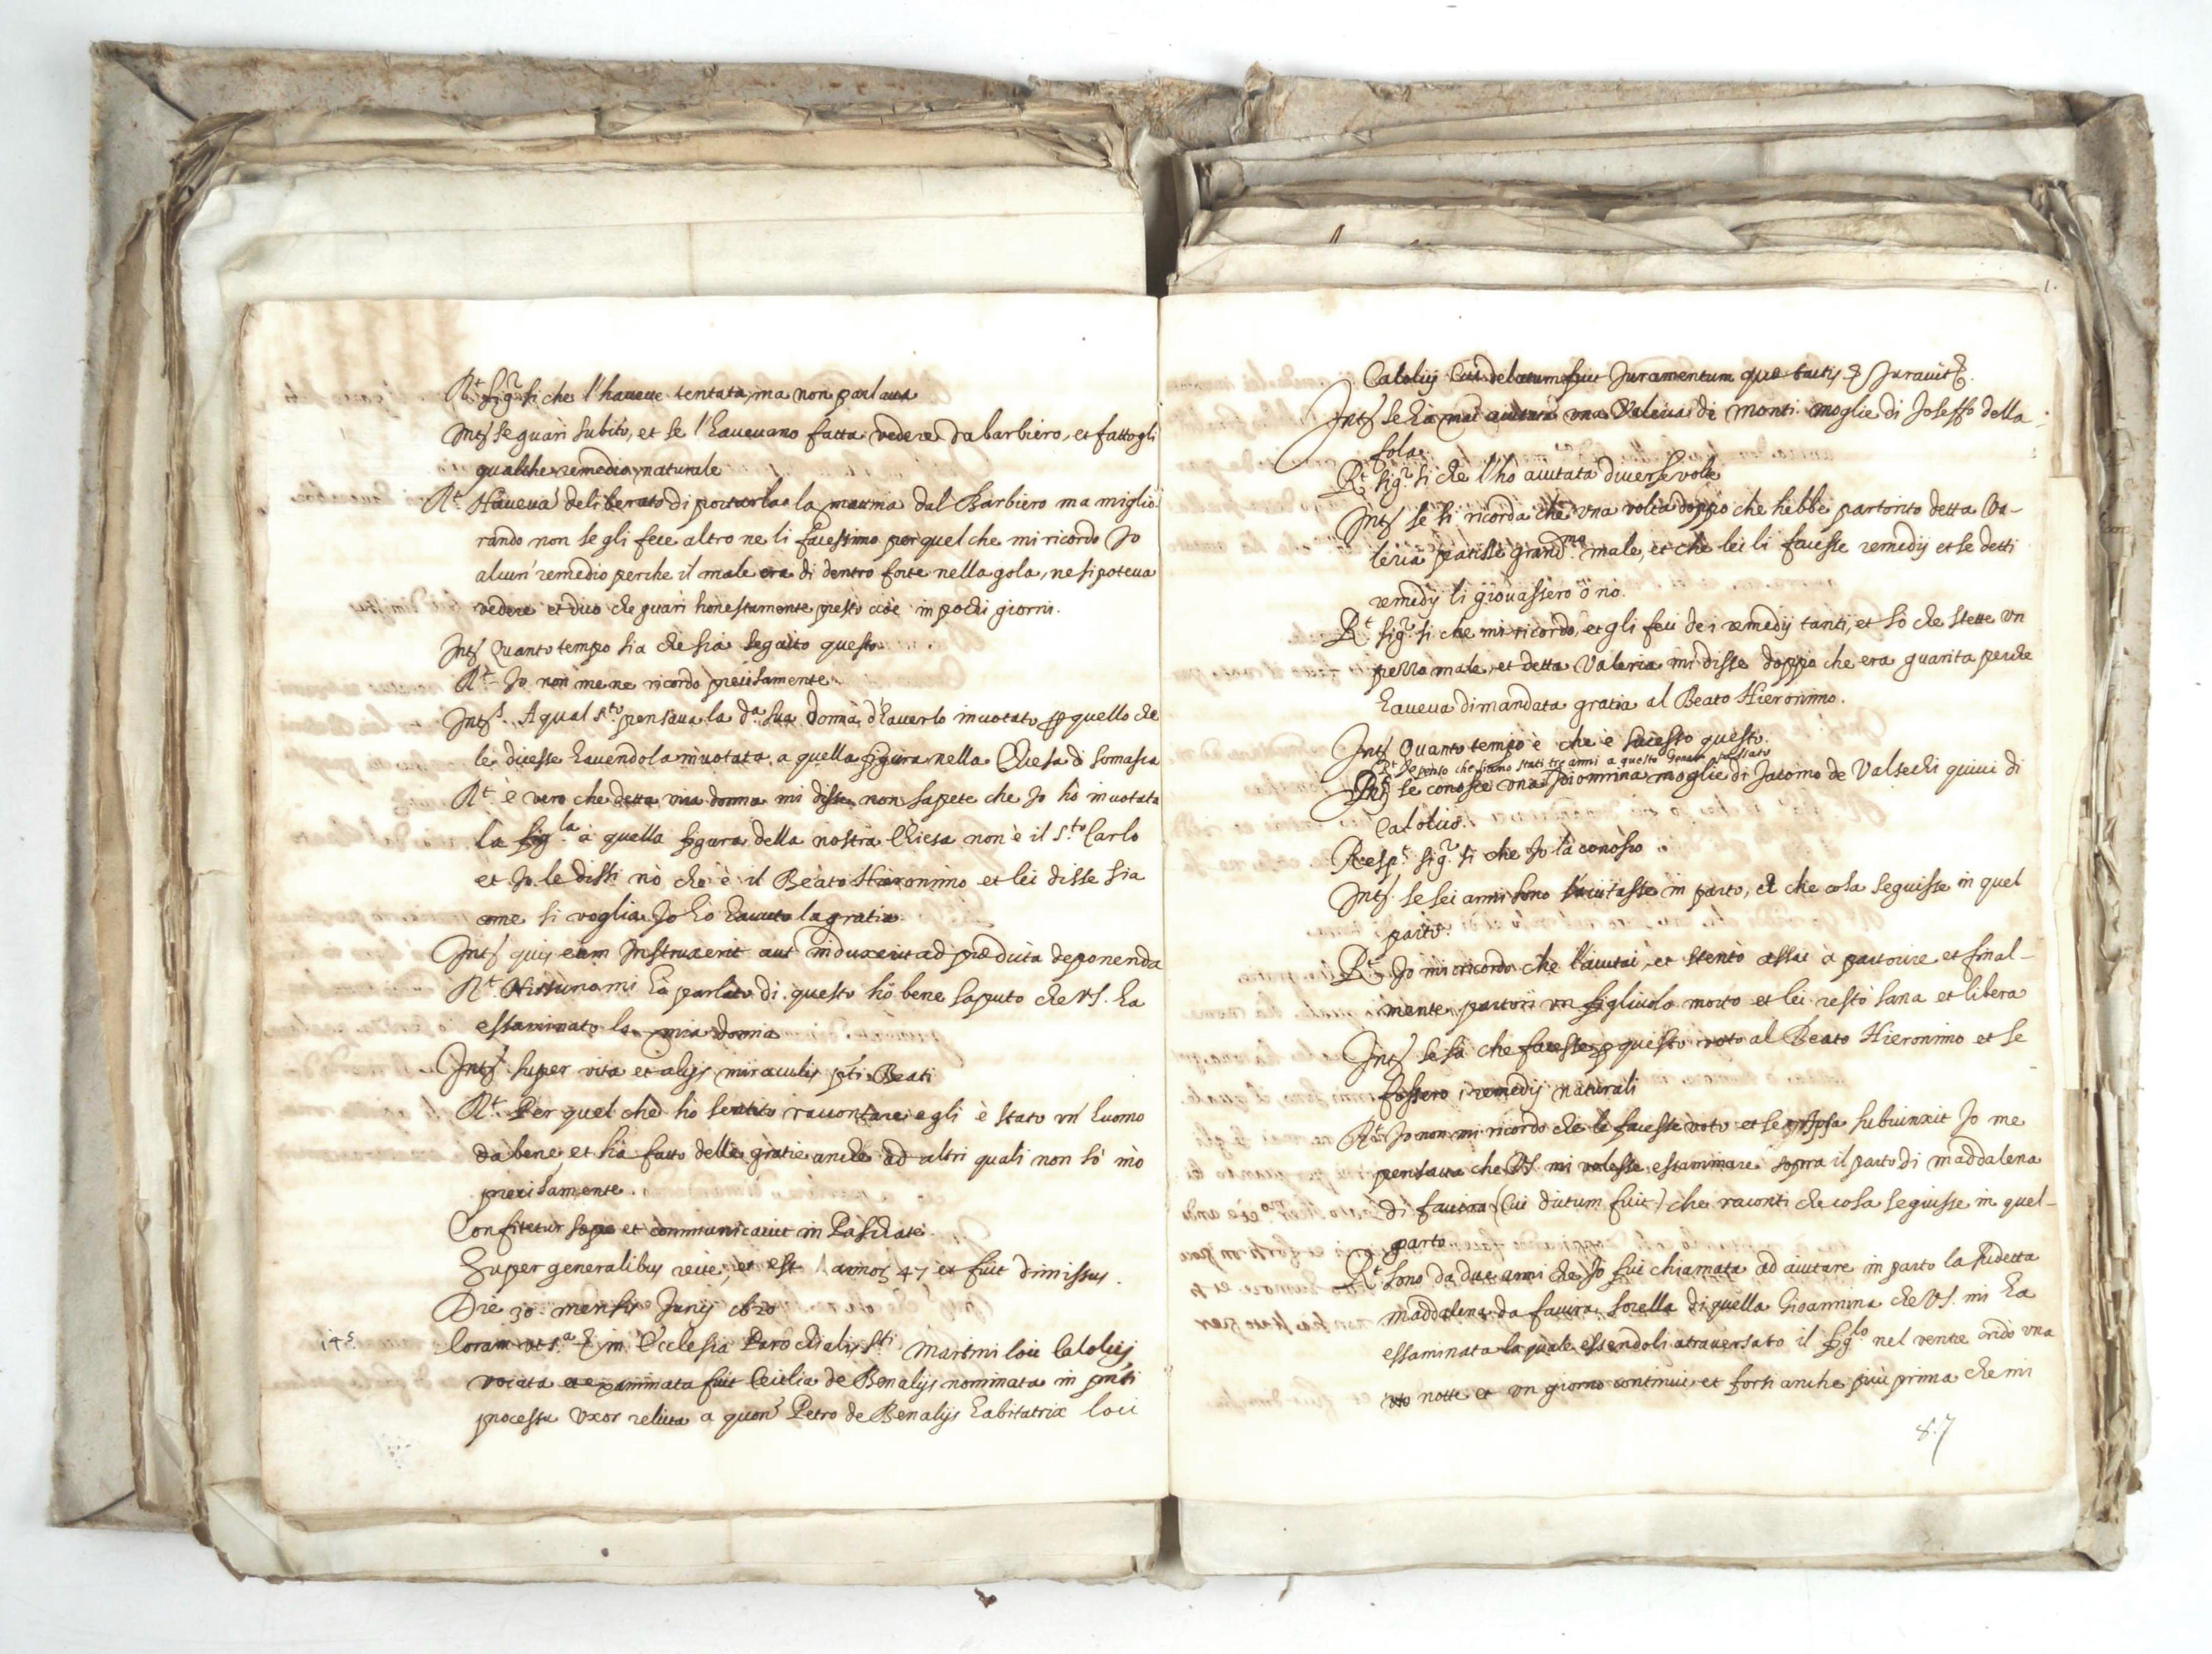 R.t Sig.r si che l'haveve tentata, ma non parlava
Int.s se guari subito, et se l'havevano fatta vedere da barbiero, et fattogli
qualche remedio naturale
R.t Haveva deliberato di portarla la mamma dal Barbiero ma miglio
rando non se gli fece altro ne li facessimo per quel che mi ricordo Jo
alcun remedio perche il male era di dentro forte nella gola, ne si poteva
vedere et dico che guari honestamente presto cioè in pochi giorni.
Int.s Quanto tempo sia che sia seguito questo
R.t Jo non me ne ricordo precisamente
Int.s A qual s.to pensava la d.a sua donna d'haverlo invotato p quello che
le dicesse havendola invotata a quella figura nella Chiesa di Somasca
R.t è vero che detta mia donna mi disse non sapete che Jo hò invotata
la fig.la à quella figura della nostra Chiesa non è il S.to Carlo
et Jo le dissi nò che è il Beato Hieronimo et lei disse sia
come si voglia Jo ho havuto la gratia
Int.s quis eam Instruxerit aut induxerit ad prædicta deponenda
R.t Nissuno mi ha parlato di questo hò bene saputo che VS. ha
essaminato la mia donna
Int.s super vita et alijs miraculis pti Beati
R.t Per quel che hò sentito raccontare egli è stato un huomo
da bene et hà fatto delle gratie anche ad altri quali non sò mò
precisamente.
Confitetur sæpe et communicavit in Paschate
Super generalibus recte, et est annor 47 et fuit dimissus.
Die 30 mensis Junij 1620
145
Coram ut s.a & in Ecclesia Parochialis S.ti Martini loci Calolcij
vocata et examinata fuit Cecilia de Benalijs nominata in pnti
processu Uxor relicta a quon Petro de Benalijs habitatrix loci
Calolcij Cui delatum fuit Juramentum quæ tactis & Juravit &.
Int.s se hà mai aiutata una Valeria de Monti moglie di Joseffo della
sola
R.t Sig.r si che l'hò aiutata diverse volte
Int.s se si ricorda che una volta doppo che hebbe partorito detta Va-
leria patisse grand.mo male, et che lei li facesse remedij et se detti
remedij li giovassero ò nò.
R.t Sig.r si che mi ricordo, et gli feci dei remedij tanti, et sò che stette un
pezzo male, et detta Valeria mi disse doppo che era guarita perche
haveva dimandata gratia al Beato Hieronimo.
Int.s Quanto tempo è che è sucesso questo.
R.t Jo penso che siano stati tre anni a questo Genaro passato
Int.s se conosce una Jioannina moglie di Jacomo de Valsechi quivi di
Calolcio.
Resp.t Sig.r si che Jo la conosco.
Int.s se sei anni sono l'aiutasse in parto, et che cosa seguisse in quel
parto.
R.t Jo mi ricordo che l'aiutai, et stentò assai à partorire et final-
mente partorì un figliuolo morto et lei restò sana et libera
Int.s se sà che facesse p questo voto al Beato Hieronimo et se
fossero i remedij naturali
R.t Jo non mi ricordo che le facesse voto et se ipsa subiunxit Jo me
pensava che VS mi volesse essaminare sopra il parto di Maddalena
di favira (Cui dictum fuit) che raconti che cosa seguisse in quel-
parto
R.t sono da due anni che Jo fui chiamata ad aiutare in parto la sudetta
Maddalena da favira sorella di quella Gioannina che VS. mi ha
essaminata la quale essendoli atraversato il fig.lo nel ventre cridò una
notte et un giorno continui et forsi anche più prima che mi
87